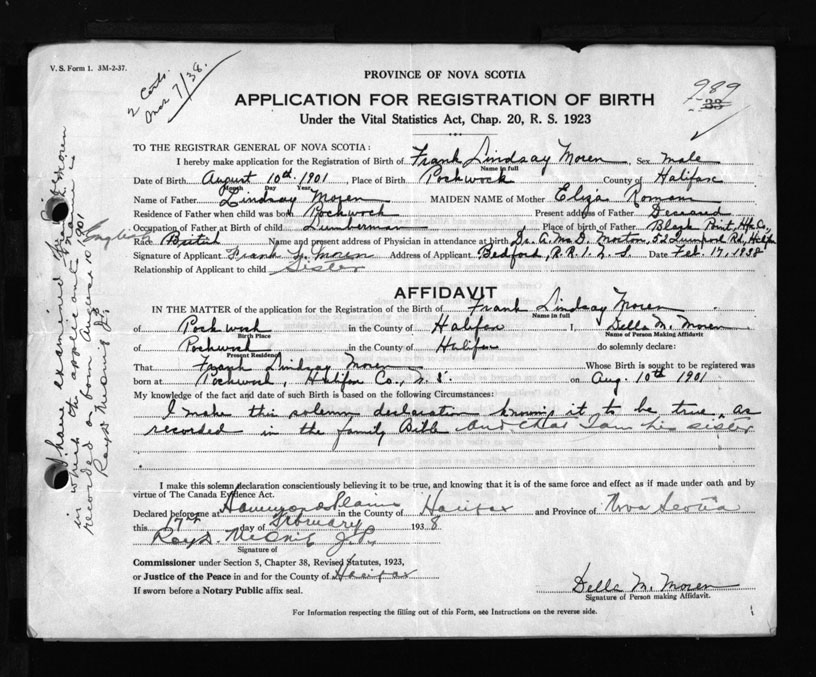 V. S. Form 1. 3M-2-37.
2 Certs.
Mar 7/38.
989
33
PROVINCE OF NOVA SCOTIA
APPLICATION FOR REGISTRATION OF BIRTH
Under the Vital Statistics Act, Chap. 20, R. S. 1923
TO THE REGISTRAR GENERAL OF NOVA SCOTIA:
I hereby make application for the Registration of Birth of Frank Lindsay Moren, Sex male
Name in full
Date of Birth August 10th 1901, Place of Birth Pockwock County of Halifax
Month Day Year
Name of Father Lindsay Moren MAIDEN NAME of Mother Eliza Romans
Residence of Father when child was born Pockwock Present address of Father Deceased
Occupation of Father at Birth of child Lumberman Place of birth of Father Black Point, Hfx Co.,
English
Race British Name and present address of Physician in attendance at birth Dr. A. McD. Morton, 52 Quinpool Rd., Halifax
Signature of Applicant Frank L. Moren Address of Applicant Bedford, R.R.1, N.S. Date Feb. 17, 1938
Relationship of Applicant to child Sister
AFFIDAVIT
IN THE MATTER of the application for the Registration of the Birth of Frank Lindsay Moren
Name in full
of Pockwock in the County of Halifax I, Della M. Moren
Birth Place Name of Person Making Affidavit
of Pockwock in the County of Halifax do solemnly declare:
Present Residence
That Frank Lindsay Moren Whose Birth is sought to be registered was
born at Pockwock, Halifax Co., N.S. on Aug. 10th 1901
My knowledge of the fact and date of such Birth is based on the following Circumstances:
I make this solemn declaration knowing it to be true, as
recorded in the family Bible and that I am his sister
I make this solemn declaration conscientiously believing it to be true, and knowing that it is of the same force and effect as if made under oath and by
virtue of The Canada Evidence Act.
Declared before me at Hammonds Plains in the County of Halifax and Province of Nova Scotia
this 17th day of February 1938
Signature of
Commissioner under Section 5, Chapter 38, Revised Statutes, 1923,
or Justice of the Peace in and for the County of Halifax
If sworn before a Notary Public affix seal.
Della M. Moren
Signature of Person making Affidavit.
For Information respecting the filling out of this Form, see Instructions on the reverse side.
I have examined the
in which the applicant's name is
recorded as born August 10, 1901